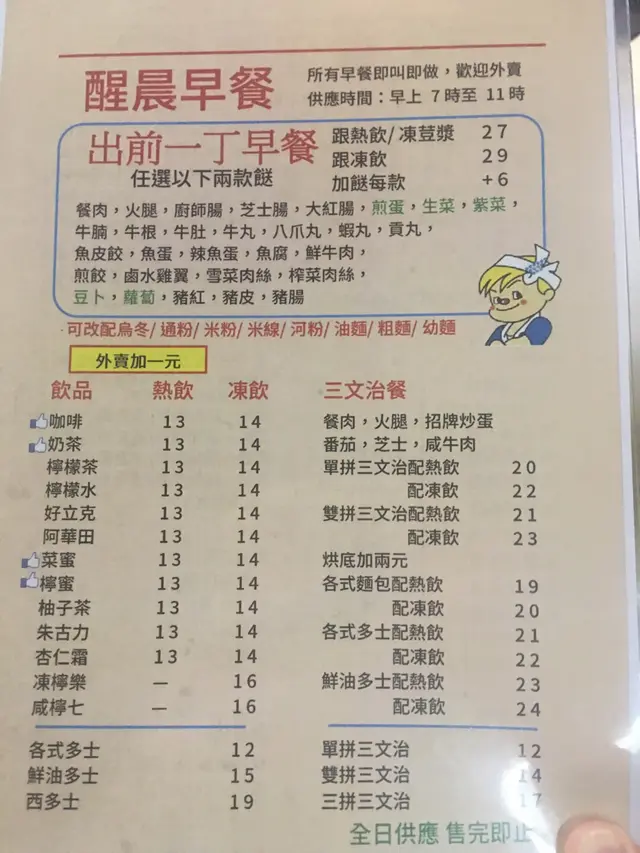 醒晨早餐
所有早餐即叫即做，歡迎外賣
供應時間：早上 7時至 11時
出前一丁早餐
任選以下兩款餸
跟熱飲/凍荳漿 27
跟凍飲 29
加餸每款 +6
餐肉，火腿，廚師腸，芝士腸，大紅腸，煎蛋，生菜，紫菜，
牛腩，牛根，牛肚，牛丸，八爪丸，蝦丸，貢丸，
魚皮餃，魚蛋，辣魚蛋，魚腐，鮮牛肉，
煎餃，鹵水雞翼，雪菜肉絲，榨菜肉絲，
豆卜，蘿蔔，豬紅，豬皮，豬腸
可改配烏冬/通粉/米粉/米線/河粉/油麵/粗麵/幼麵
外賣加一元
飲品 熱飲 凍飲
咖啡 13 14
奶茶 13 14
檸檬茶 13 14
檸檬水 13 14
好立克 13 14
阿華田 13 14
菜蜜 13 14
檸蜜 13 14
柚子茶 13 14
朱古力 13 14
杏仁霜 13 14
凍檸樂 — 16
咸檸七 — 16
各式多士 12
鮮油多士 15
西多士 19
三文治餐
餐肉，火腿，招牌炒蛋
番茄，芝士，咸牛肉
單拼三文治配熱飲 20
配凍飲 22
雙拼三文治配熱飲 21
配凍飲 23
烘底加兩元
各式麵包配熱飲 19
配凍飲 20
各式多士配熱飲 21
配凍飲 22
鮮油多士配熱飲 23
配凍飲 24
單拼三文治 12
雙拼三文治 14
三拼三文治 17
全日供應 售完即止